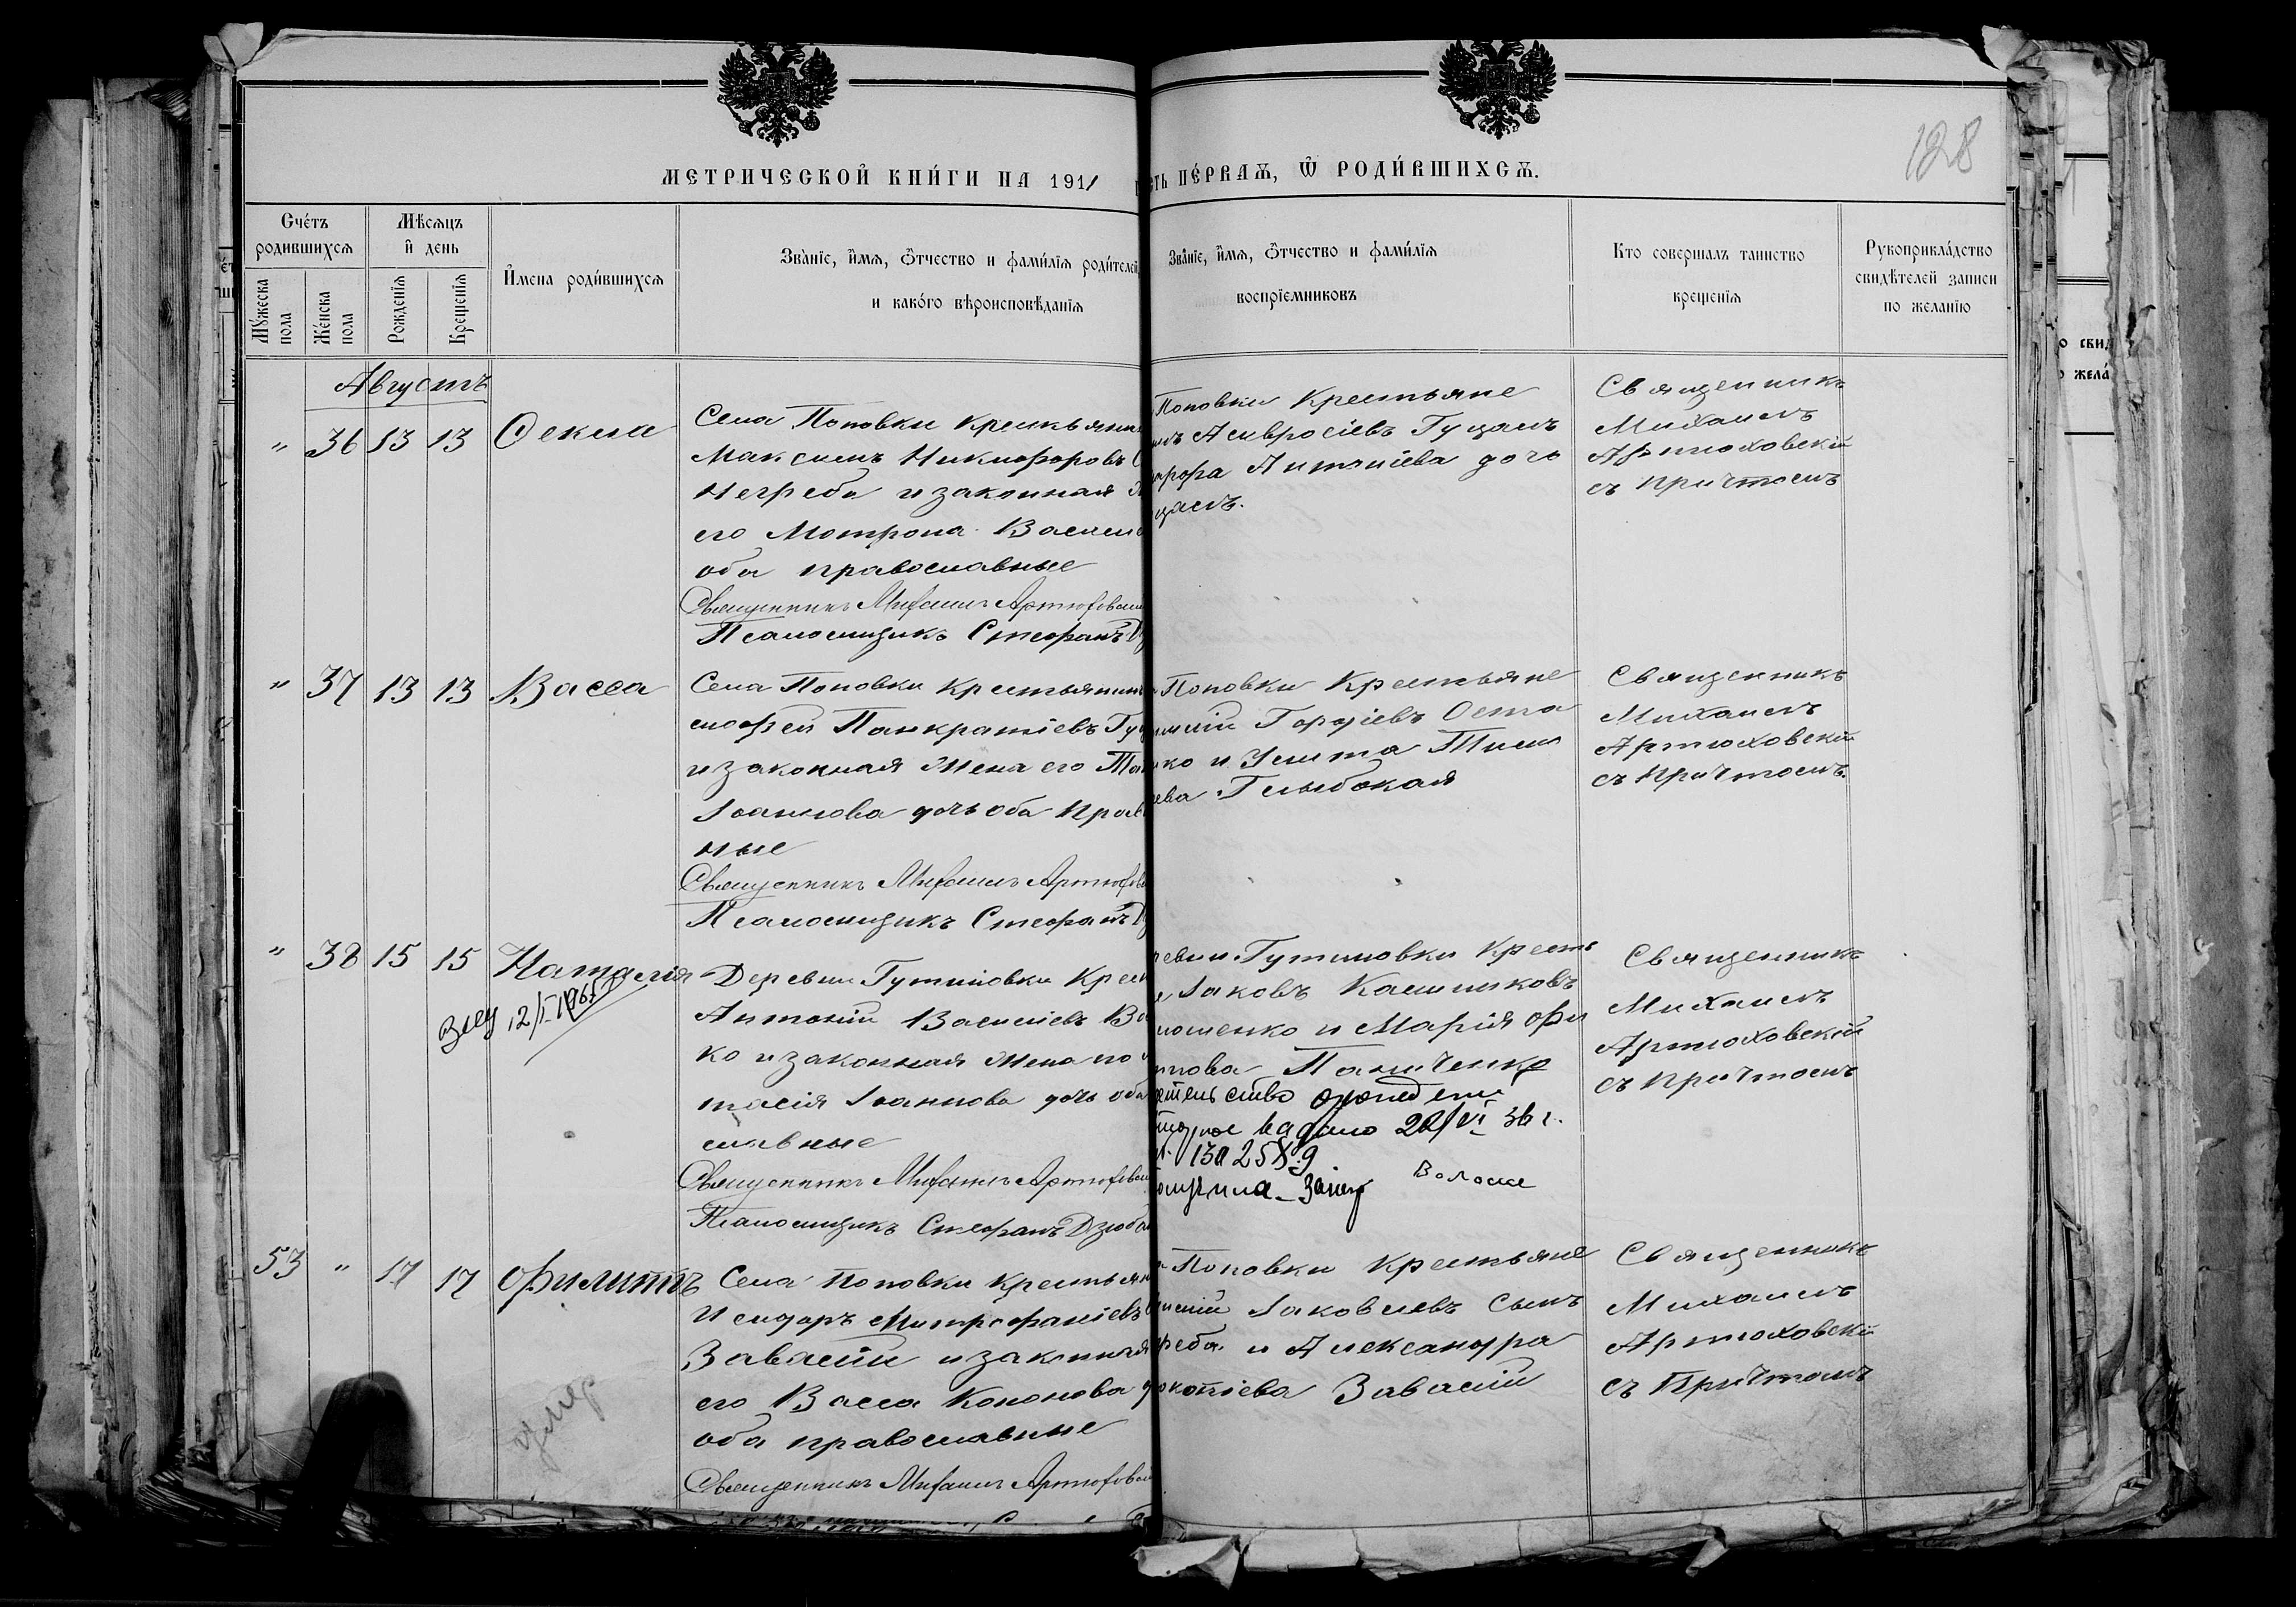 128
МЕТРИЧЕСКОЙ КНИ́ГИ НА 1911
сть пе́рваѧ, ѿ роди́вшихсѧ.
Сче́тъ родившихсѧ
Му́жеска пола
Же́нска пола
Мѣсѧцъ и день
Рождені́я
Крещені́я
И́мена роди́вшихсѧ
Зва́ніе, и́мѧ, ѻ́тчество и фами́лїѧ роди́телей
и како́го вѣроисповѣданїѧ
Зва́ніе, и́мѧ, ѻ́тчество и фами́лїѧ
воспрїемниковъ
Кто совершалъ таинство
крещенїѧ
Рукоприкла́дство
свидѣтелей записи
по желанїю
Августъ
" 36 13 13 Ѳекла
Села Поповки крестьянин
Максимъ Никифоровъ
Негреба и законная
его Мотрона Васил
оба православные
Священникъ Михаилъ Артюховский
Псаломщикъ Стефанъ
Поповки Крестьяне
Амвросіевъ Гуцалъ
Антоніева дочь
цалъ.
Священникъ
Михаилъ
Артюховскій
съ причтомъ
" 37 13 13 Васса
Села Поповки крестьянинъ
мофей Панкратіевъ Гу
и законная жена его
Іоаннова дочь оба прав
ные
Священникъ Михаилъ Артюхов
Псаломщикъ Стефанъ
Поповки Крестьяне
Гордіевъ Оста
ко и Улита Тимо
ева Глыбокая
Священникъ
Михаилъ
Артюховскій
съ причтомъ.
" 38 15 15 Наталія
12/I 1965
Деревни Гутировки Крест
Антоній Василіевъ
ко и законная жена его
тасія Іоаннова дочь оба
славные
Священникъ Михаилъ Артюховс
Псаломщикъ Стефанъ Дзюба
ревни Гутировки Кресть
Іаковъ
мошенко и Марія Фи
ппова Паниченко
выдано
36 г.
Священникъ
Михаилъ
Артюховскій
съ причтомъ
53 " 17 17 Филиппъ
умер
Села Поповки крестьян
Исидоръ Митрофаніевъ
Завалій и законная
его Васса Кононова
оба православные
Священникъ Михаилъ Артюховс
Поповки Крестьяне
Іаковлевъ сынъ
реба и Александра
Завалій
Священникъ
Михаилъ
Артюховскій
съ Причтомъ